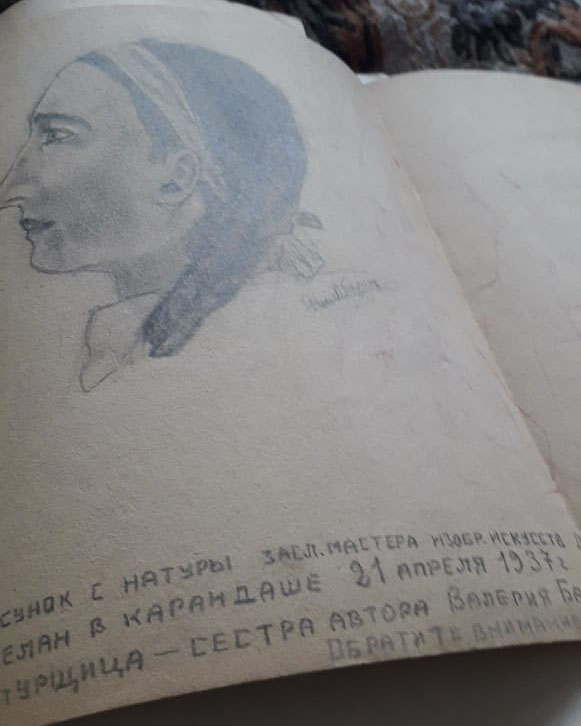 СУНОК С НАТУРЫ ЗАСЛ. МАСТЕРА ИЗОБР. ИСКУССТВ
ЕЛАН В КАРАНДАШЕ 21 АПРЕЛЯ 1937г
ТУРЩИЦА — СЕСТРА АВТОРА ВАЛЕРИЯ БА
ОБРАТИТЕ ВНИМАНИ